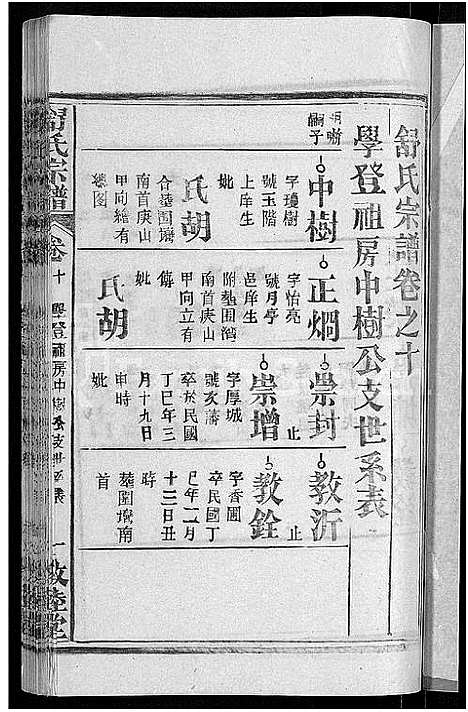 舒氏宗譜卷之十
學登祖房中樹公支世系表
嗣子
中樹
字瓊樹
號玉階
上庠生
妣
氏胡
合塟圍灣
南首庚山
甲向繪有
總圖
正烱
字怡亮
號月亭
邑庠生
附塟圍灣
南首庚山
甲向立有
傳
妣
氏胡
崇封
止
崇增
字厚城
號亥藩
卒於民國
丁巳年三
月十九日
申時
妣
教沂
止
教銓
字香圃
卒民國丁
巳年二月
十三日丑
時
塟圍墩南
首
舒氏宗譜
卷十
學登祖房中樹公支世系表
一
敦睦堂